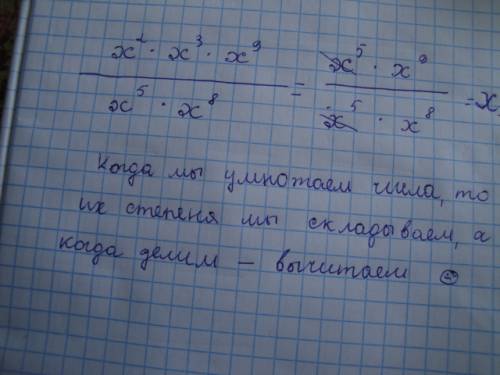 x² · x³ · x⁹ / x⁵ · x⁸ = x⁵ · x⁹ / x⁵ · x⁸ = x
Когда мы умножаем числа, то
их степеня мы складываем, а
когда делим – вычитаем ☺